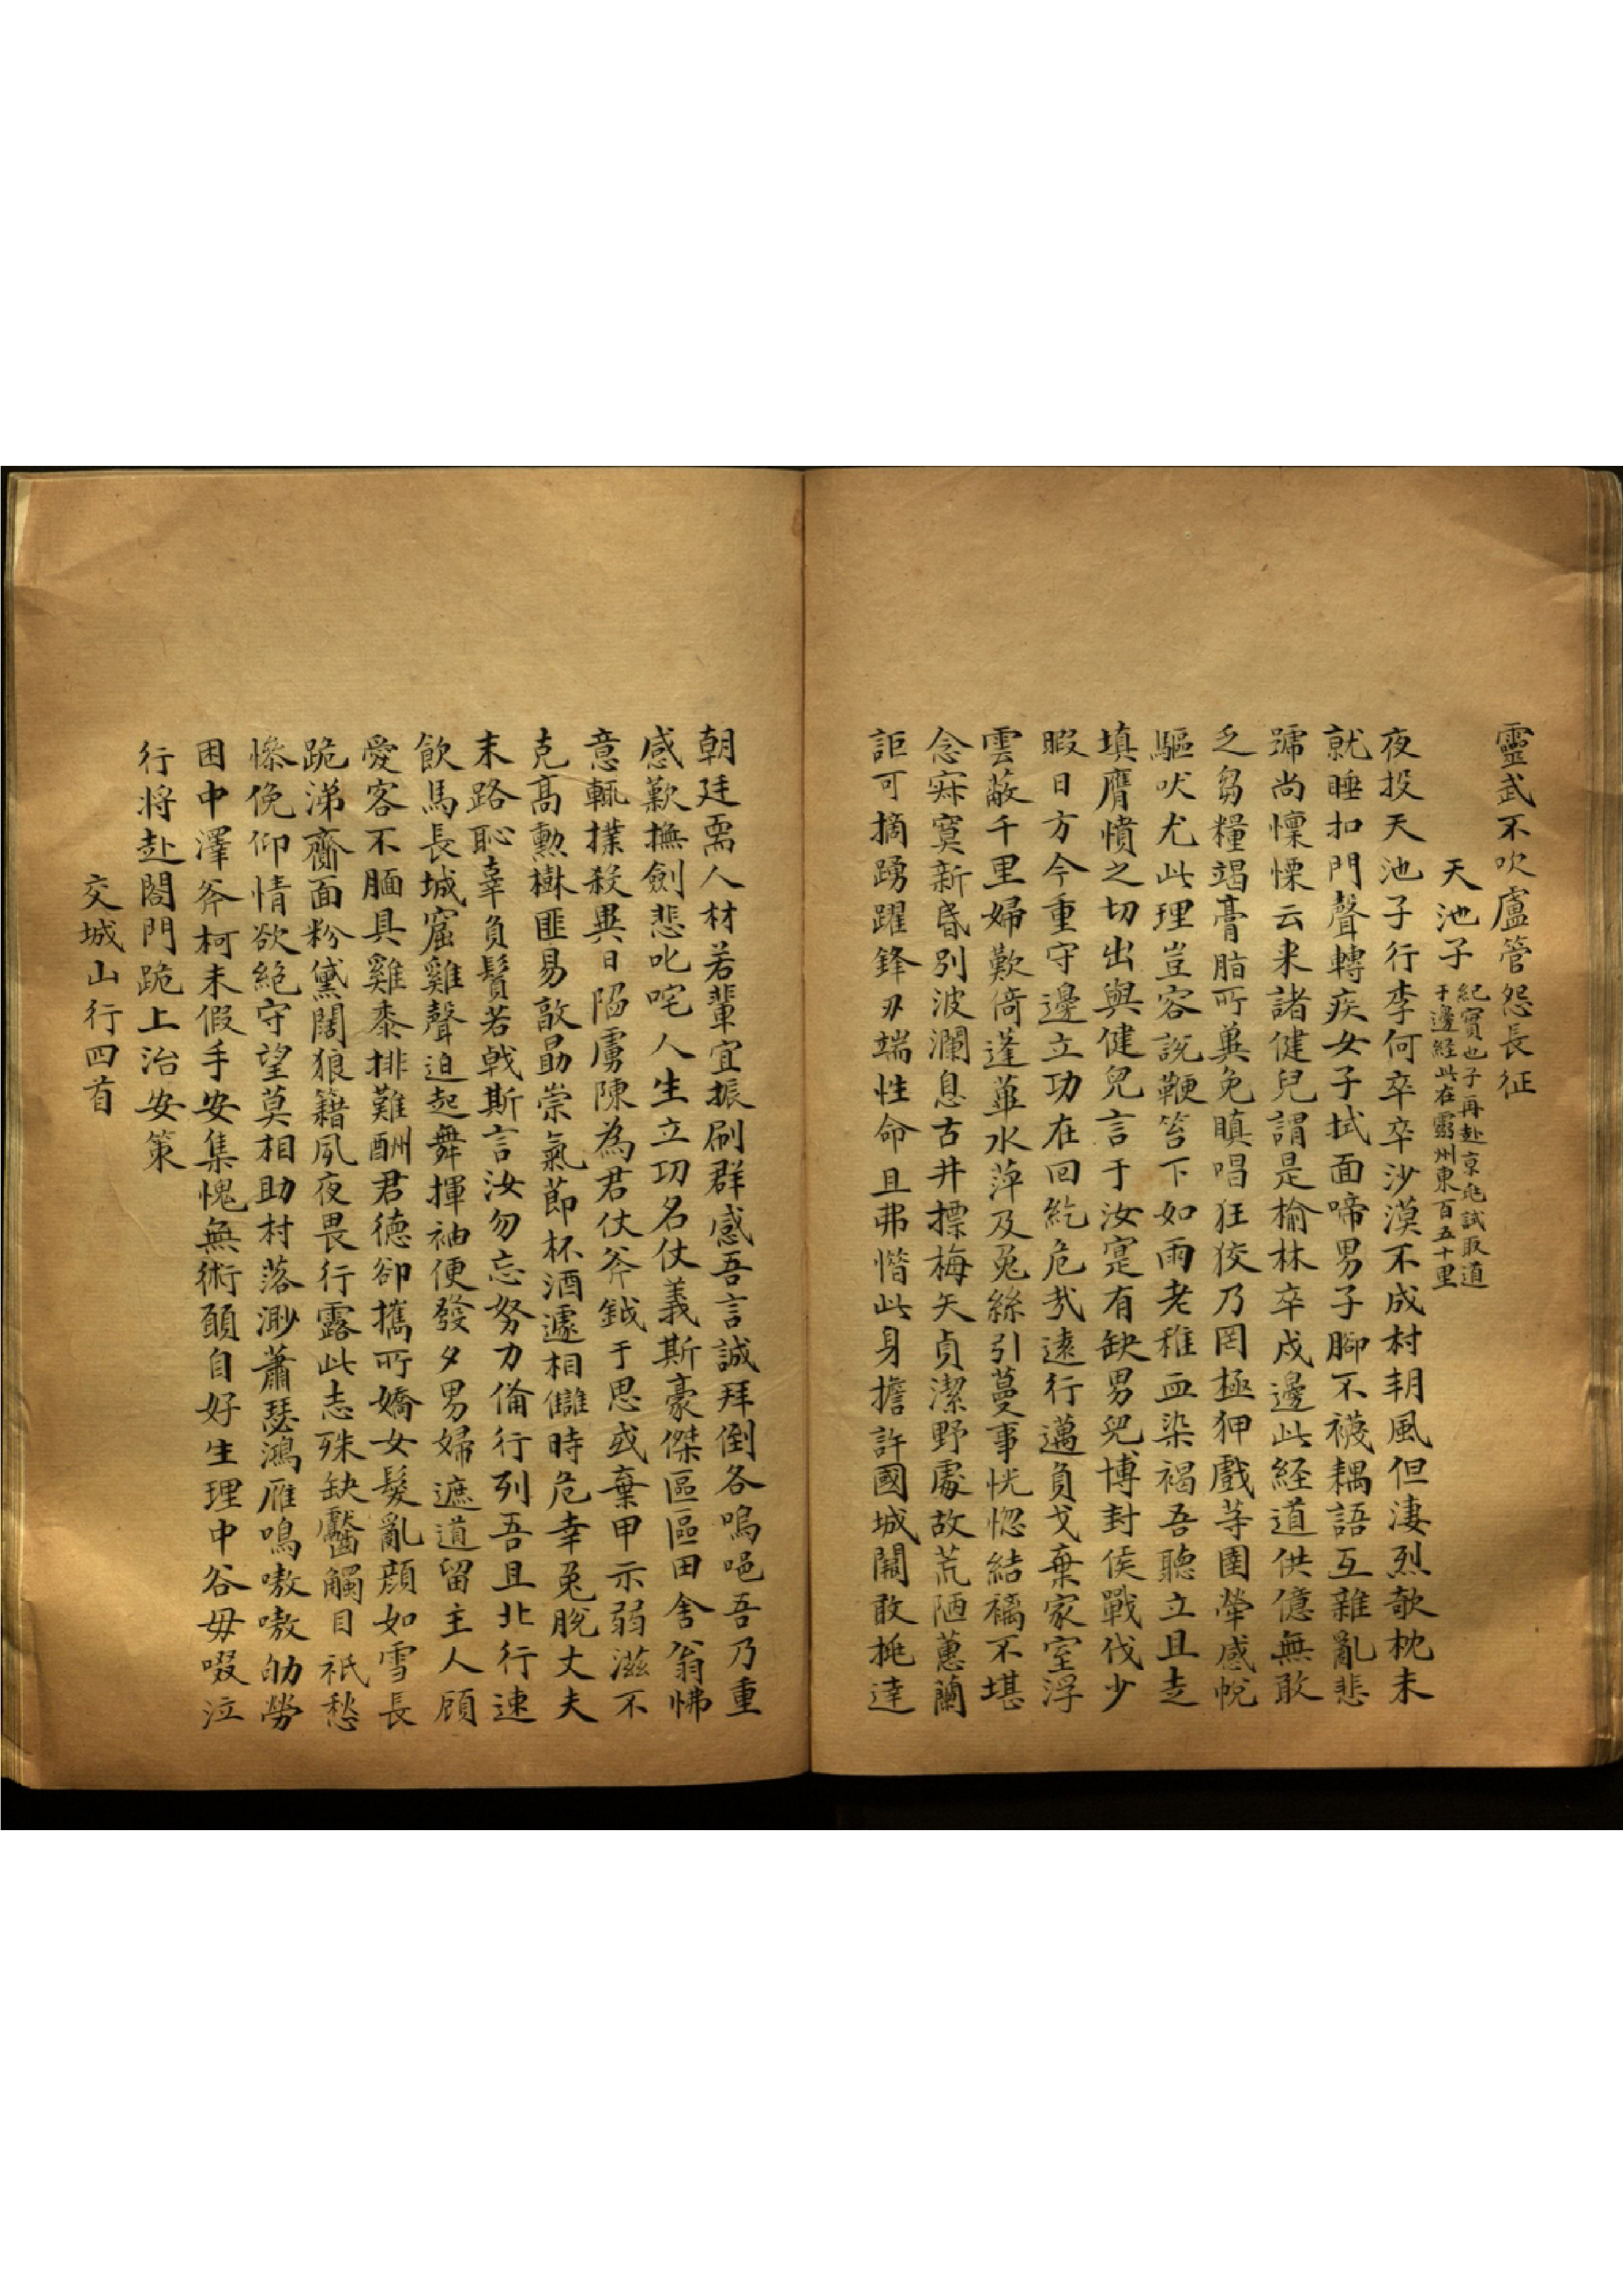 靈武不吹廬管怨長征
天池子
紀實也子再赴京兆試取道
于邊経此在靈州東百五十里
夜投天池子行李何卒卒沙漠不成村朔風但淒烈欹枕未
就睡扣門聲轉疾女子拭面啼男子腳不襪耦語互雜亂悲
號尚懍慄云来諸健兒謂是榆林卒戍邊此経道供億無敢
乏芻糧竭膏脂所兾免瞋唱狂狡乃罔極狎戲等圉犖感帨
驅吠尤此理豈容説鞭笞下如雨老稚血染褐吾聽立且走
填膺憤之切出與健兒言于汝寔有缺男兒博封侯戰伐少
暇日方今重守邊立功在回紇危㦲遠行邁負戈棄家室浮
雲蔽千里婦歎倚蓬蓽水萍及兎絲引蔓事恍惚結褵不堪
念寂寞新昏別波瀾息古井摽梅矢貞潔野處故荒陋蕙蘭
詎可摘踴躍鋒刃端性命且弗惜此身擔許國城闕敢挑達
朝廷需人材若輩宜振刷群感吾言誠拜倒各嗚唈吾乃重
感歎撫劍悲叱咤人生立功名仗義斯豪傑區區田舍翁怫
意輒撲殺異日陷虜陳為君仗斧鉞于思或棄甲示弱滋不
克高勲樹匪易敢勗崇氣莭杯酒遽相讎時危幸兎脫丈夫
末路恥辜負鬢若戟斯言汝勿忘努力偹行列吾且北行速
飲馬長城窟雞聲迫起舞揮袖便發夕男婦遮道留主人顧
愛客不腼具雞黍排難酬君德卻攜所嬌女髮亂顔如雪長
跪涕齊面粉黛闊狼籍夙夜畏行露此志殊缺齾觸目祇愁
慘俛仰情欲絕守望莫相助村落渺蕭瑟鴻雁鳴嗷嗷劬勞
困中澤斧柯未假手安集愧無術願自好生理中谷毋啜泣
行将赴閤門跪上治安策
交城山行四首